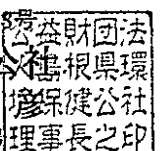 公益財団法
人島根県環
境保健公社
理事長之印
公社